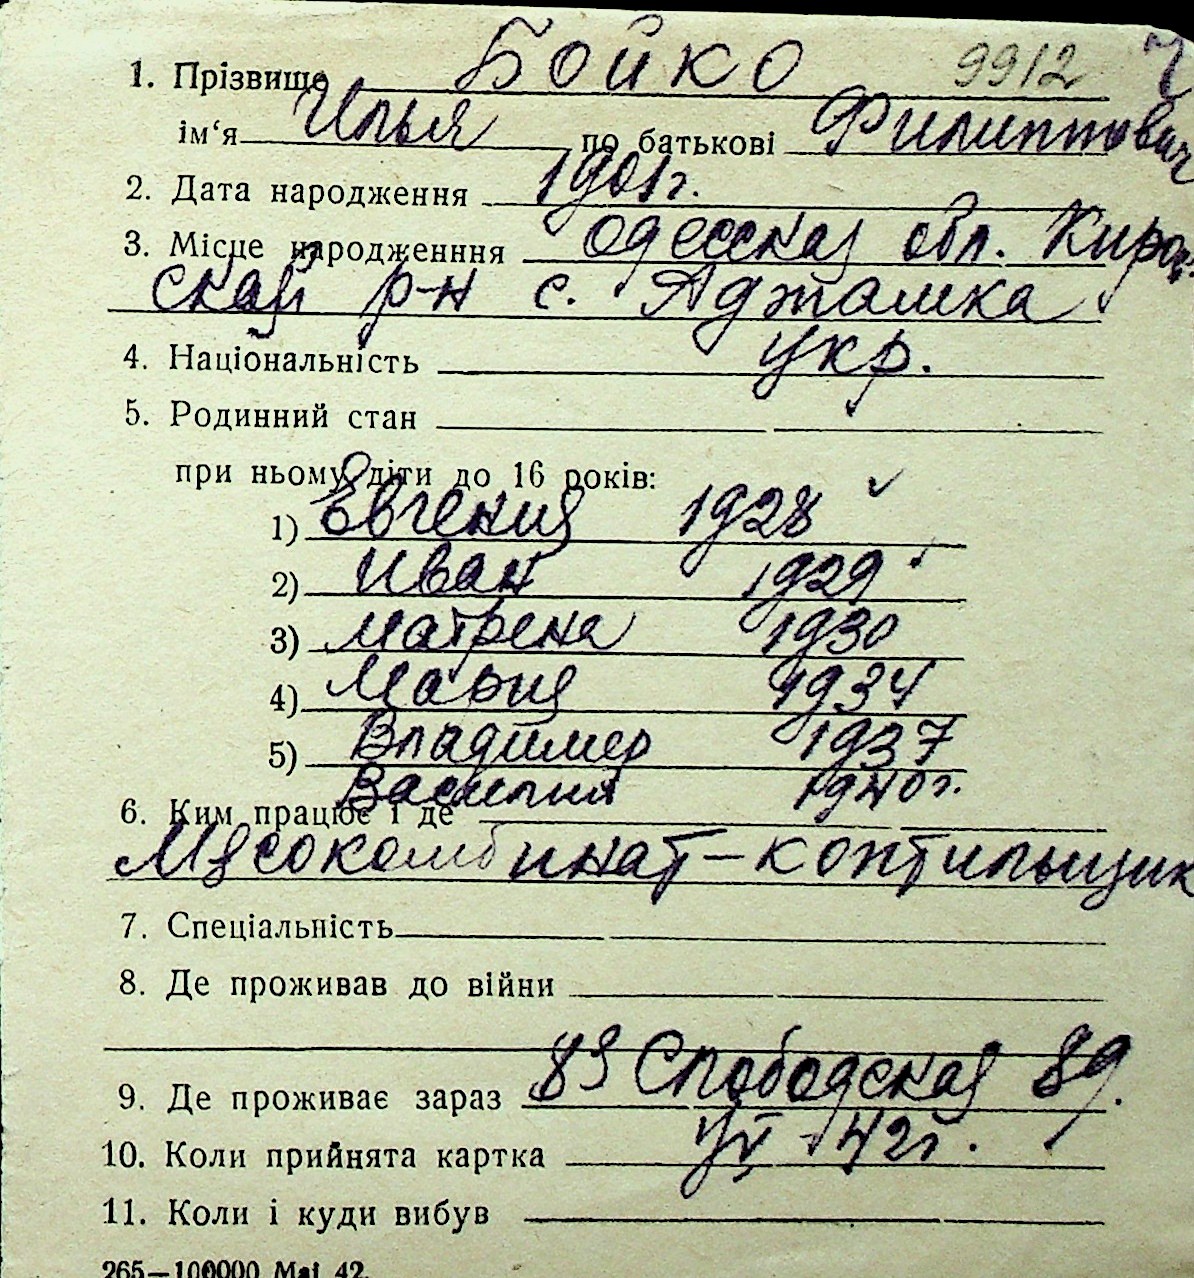 1. Прізвище Бойко 9912
ім‘я Илья по батькові Филиппович
2. Дата народження 1901г.
3. Місце народженння Одесская обл. Киров
ский р-н с. Аджамка
4. Національність укр.
5. Родинний стан
при ньому діти до 16 років:
1) Евгения 1928
2) Иван 1929
3) Матрена 1930
4) Мария 1934
5) Владимер 1937
Василий 1940г.
6. Ким працює і де
Мясокомбинат – коптильщик
7. Спеціальність
8. Де проживав до війни
9. Де проживає зараз 89 Слободская 89.
10. Коли прийнята картка 42г.
11. Коли і куди вибув
265—100000 Маі 42.